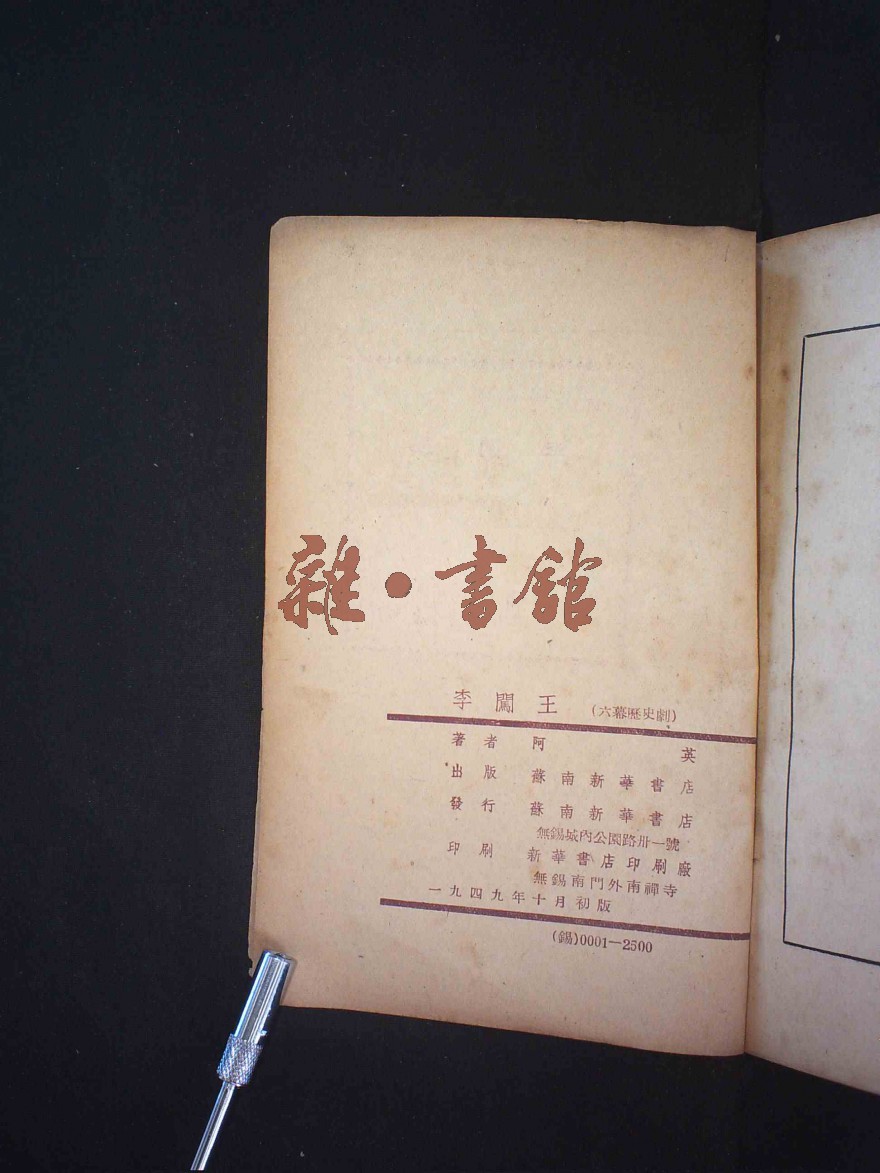 雜·書館
李闖王 (六幕歷史劇)
著者 阿英
出版 蘇南新華書店
發行 蘇南新華書店
無錫城內公園路卅一號
印刷 新華書店印刷廠
無錫南門外南禪寺
一九四九年十月初版
(錫)0001—2500